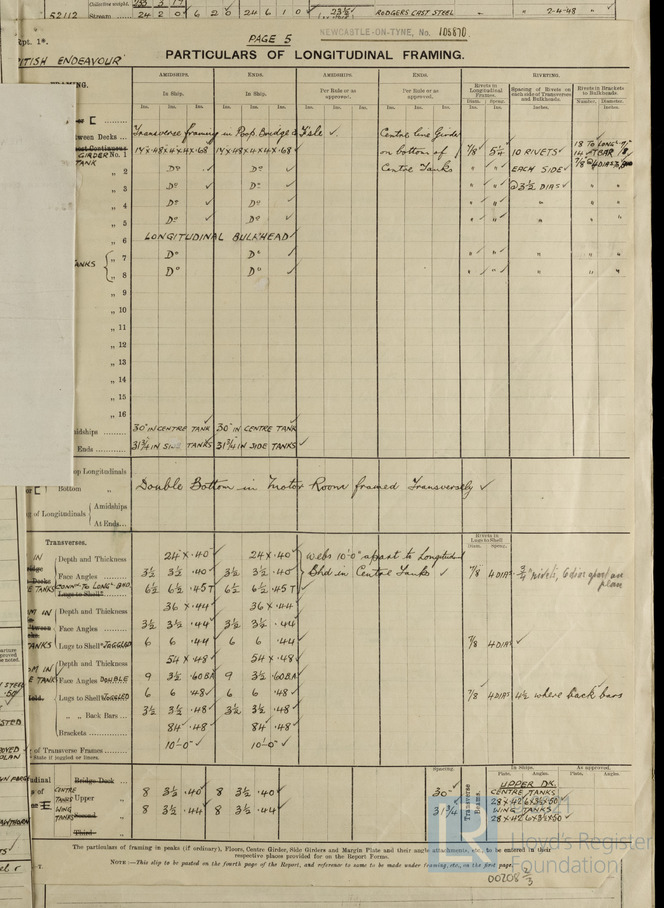 52112 Stream 24 2 0 6 2 0 24 6 1 0 23½ RODGERS CAST STEEL " " 7-4-48
Rpt. 1*. PAGE 5 NEWCASTLE-ON-TYNE, No. 105870
BRITISH ENDEAVOUR
PARTICULARS OF LONGITUDINAL FRAMING.
AMIDSHIPS. ENDS. AMIDSHIPS. ENDS. Rivets in Longitudinal Frames. RIVETING.
In Ship. In Ship. Per Rule or as approved. Per Rule or as approved. Spacing of Rivets on each side of Transverses and Bulkheads. Rivets in Brackets to Bulkheads.
Ins. Ins. Ins. Ins. Ins. Ins. Ins. Ins. Ins. Ins. Ins. Ins. Diam. Ins. Spacg. Ins. Inches. Number. Diameter. Inches.
Transverse framing in Poop, Bridge & F'csle ✓ Centre line Girder
GIRDER No. 1 14 × 48 × 4 × 4 × .68 14 × 48 × 4 × 4 × .68 ✓ on bottom of 7/8 5¼ 10 RIVETS ✓
TANK
" 2 Do ✓ Do ✓ Centre Tanks " " EACH SIDE ✓
" 3 Do ✓ Do ✓ " " @ 3½ DIAS ✓ " "
" 4 Do ✓ Do ✓ " " " " "
" 5 Do ✓ Do ✓ " " " " "
" 6 LONGITUDINAL BULKHEAD ✓
TANKS " 7 Do Do ✓ " " " " "
" 8 Do Do ✓ " " " " "
" 9
" 10
" 11
" 12
" 13
" 14
" 15
" 16
Amidships 30" IN CENTRE TANK 30" IN CENTRE TANK
Ends 31¾ IN SIDE TANKS 31¾ IN SIDE TANKS ✓
Top Longitudinals
Bottom " Double Bottom in Motor Room framed Transversely ✓
of Longitudinals Amidships
At Ends
Transverses. Rivets in Lugs to Shell
Diam. Spacg.
IN Depth and Thickness 24 × .40 24 × .40 Webs 10'-0" apart to Longitudl
Face Angles 3½ 3½ .40 3½ 3½ .40 Bhd in Central Tanks ✓ 7/8 4 DIAS
CONN. TO LONG. BHD. 6½ 6½ .45 T 6½ 6½ .45 T
Depth and Thickness 36 × .44 36 × .44
Face Angles 3½ 3½ .44 3½ 3½ .44
TANKS Lugs to Shell* JOGGLED 6 6 .44 6 6 .44 7/8 4 DIAS ✓
Depth and Thickness 54 × .48 54 × .48
TANK Face Angles DOUBLE 9 3½ .60 BA 9 3½ .60 BA
Lugs to Shell* JOGGLED 6 6 .48 6 6 .48 7/8 4 DIAS 4½ where back bars
" " Back Bars 3½ 3½ .48 3½ 3½ .48
Brackets 84 .48 84 .48
of Transverse Frames 10'-0" ✓ 10'-0" ✓
* State if joggled or liners.
Spacing. In Ship. As approved.
Plate. Angles. Plate. Angles.
Bridge Deck UPPER DK.
CENTRE TANKS Upper " 8 3½ .40 8 3½ .40 30" Transverse Beams. CENTRE TANKS
28 × .42 6 × 3½ × .50
WING TANKS Second " 8 3½ .44 8 3½ .44 31¾ WING TANKS
28 × .42 6 × 3½ × .50
Third "
The particulars of framing in peaks (if ordinary), Floors, Centre Girder, Side Girders and Margin Plate and their angle attachments, etc., to be entered in their
respective places provided for on the Report Forms.
NOTE:—This slip to be posted on the fourth page of the Report, and reference to same to be made under framing, etc., on the first page.
Lloyd's Register
Foundation
00208 2/3